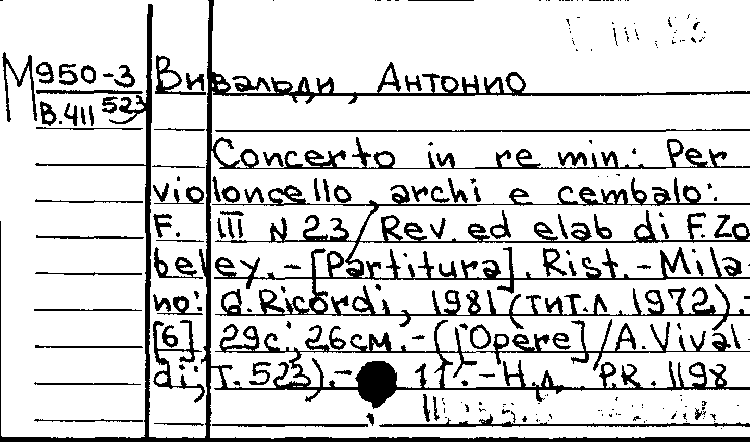 М950-3 Вивальди, Антонио
В.411 523
Concerto in re min.: Per
violoncello, archi e cembalo:
F. III N 23 / Rev. ed elab di F. Zo
beley. - [Partitura]. Rist. - Mila-
no: G. Ricordi, 1981 (тит.л. 1972). -
[6], 29с.; 26см. - ([Opere] / A. Vival
di; Т. 523). - 11'. - Н.д. P.R. 1198